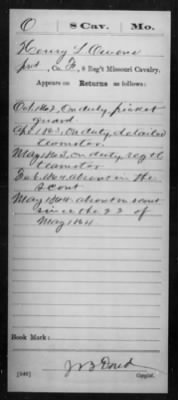 O 8 Cav. Mo.
Henry L. Owens
Pvt., Co. F, 8 Reg't Missouri Cavalry.
Appears on
Returns as follows:
Oct. 1862, On duty, picket
guard.
Apr. 1863, On duty, detailed
teamster.
May 1863, on duty regtl
teamster.
Feb. 1864 absent on the
scout
May 1864 absent on scout
since the 22 of
May 1864
Book Mark:
[546] Copyist.